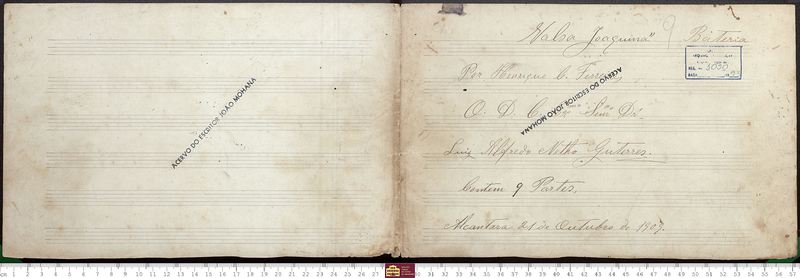 ACERVO DO ESCRITOR JOÃO MOHANA
"Valsa Joaquina" Bateria
Por Henrique C. Ferreira
ACERVO DO ESCRITOR JOÃO MOHANA
O. D. C. Snr. Dr.
Luiz Alfredo Netto Guterres.
Contem 9 Partes,
Alcantara 21 de Outubro de 1907.